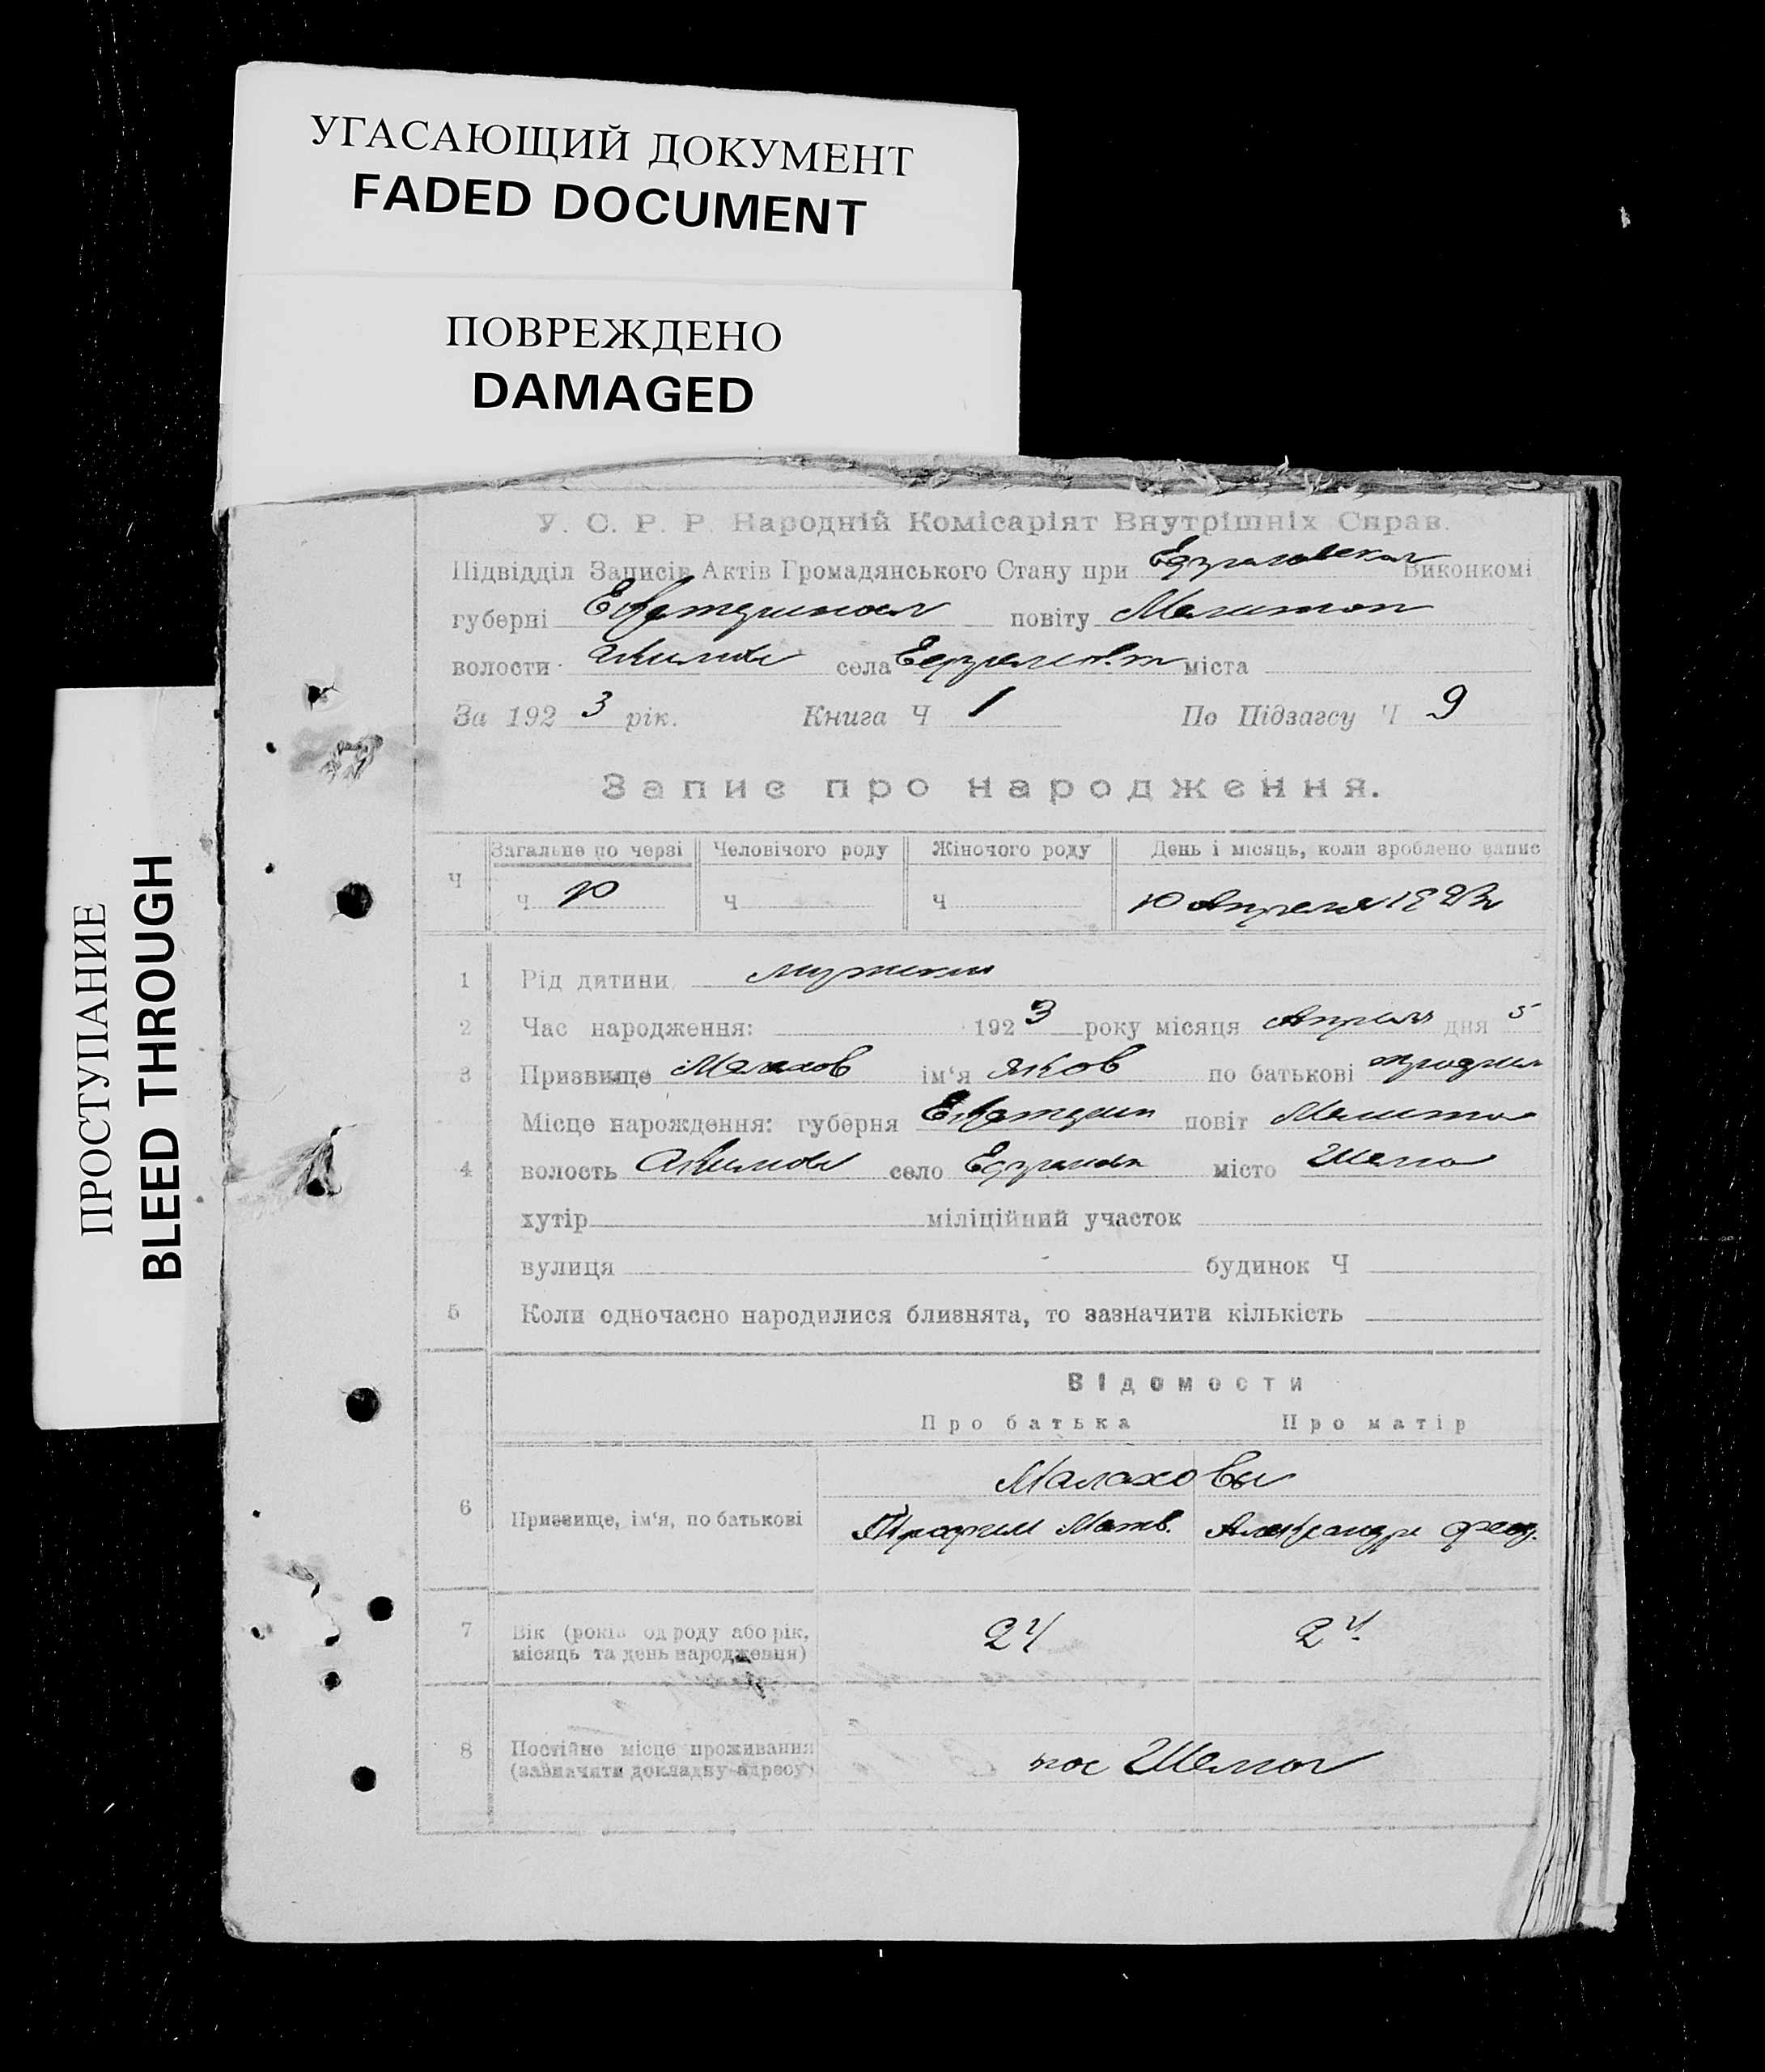 УГАСАЮЩИЙ ДОКУМЕНТ
FADED DOCUMENT
ПОВРЕЖДЕНО
DAMAGED
ПРОСТУПАНИЕ
BLEED THROUGH
У. С. Р. Р. Народній Комісаріят Внутрішніх Справ.
Підвідділ Записів Актів Громадянського Стану при Виконкомі
губерні Екатериносл повіту Мелитоп
волости Акимов села міста
За 192 3 рік. Книга Ч 1 По Підзагсу Ч 9
Запис про народження.
Ч Загальне по черзі Человічого роду Жіночого роду День і місяць, коли зроблено запис
Ч 10 Ч Ч 10 Апреля 1923
1 Рід дитини мужский
2 Час народження: 192 3 року місяця Апреля дня 5
3 Призвище Малахов ім'я Яков по батькові
Місце нарождення: губерня Екатерин повіт Мелитоп
4 волость Акимов село місто
хутір міліційний участок
вулиця будинок Ч
5 Коли одночасно народилися близнята, то зазначити кількість
Відомости
Про батька Про матір
Малаховы
6 Призвище, ім'я, по батькові Трофим Матв. Александра Фед.
7 Вік (років од роду або рік, місяць та день народження) 24 24
8 Постійне місце проживання (зазначити докладну адресу) пос